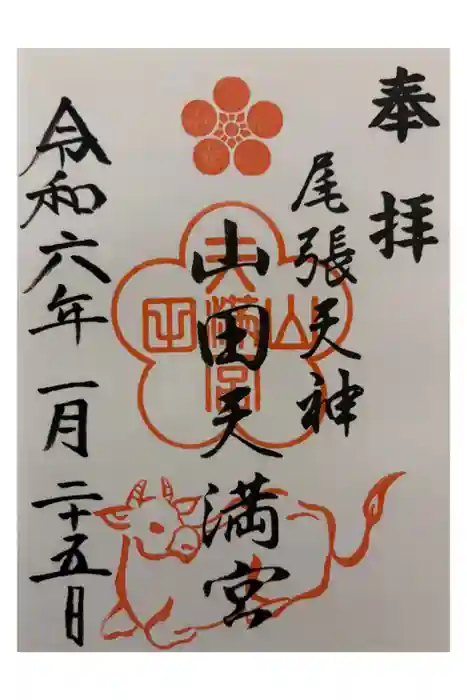 奉拝
尾張天神
山田天満宮
天満宮
山田
令和六年一月二十五日